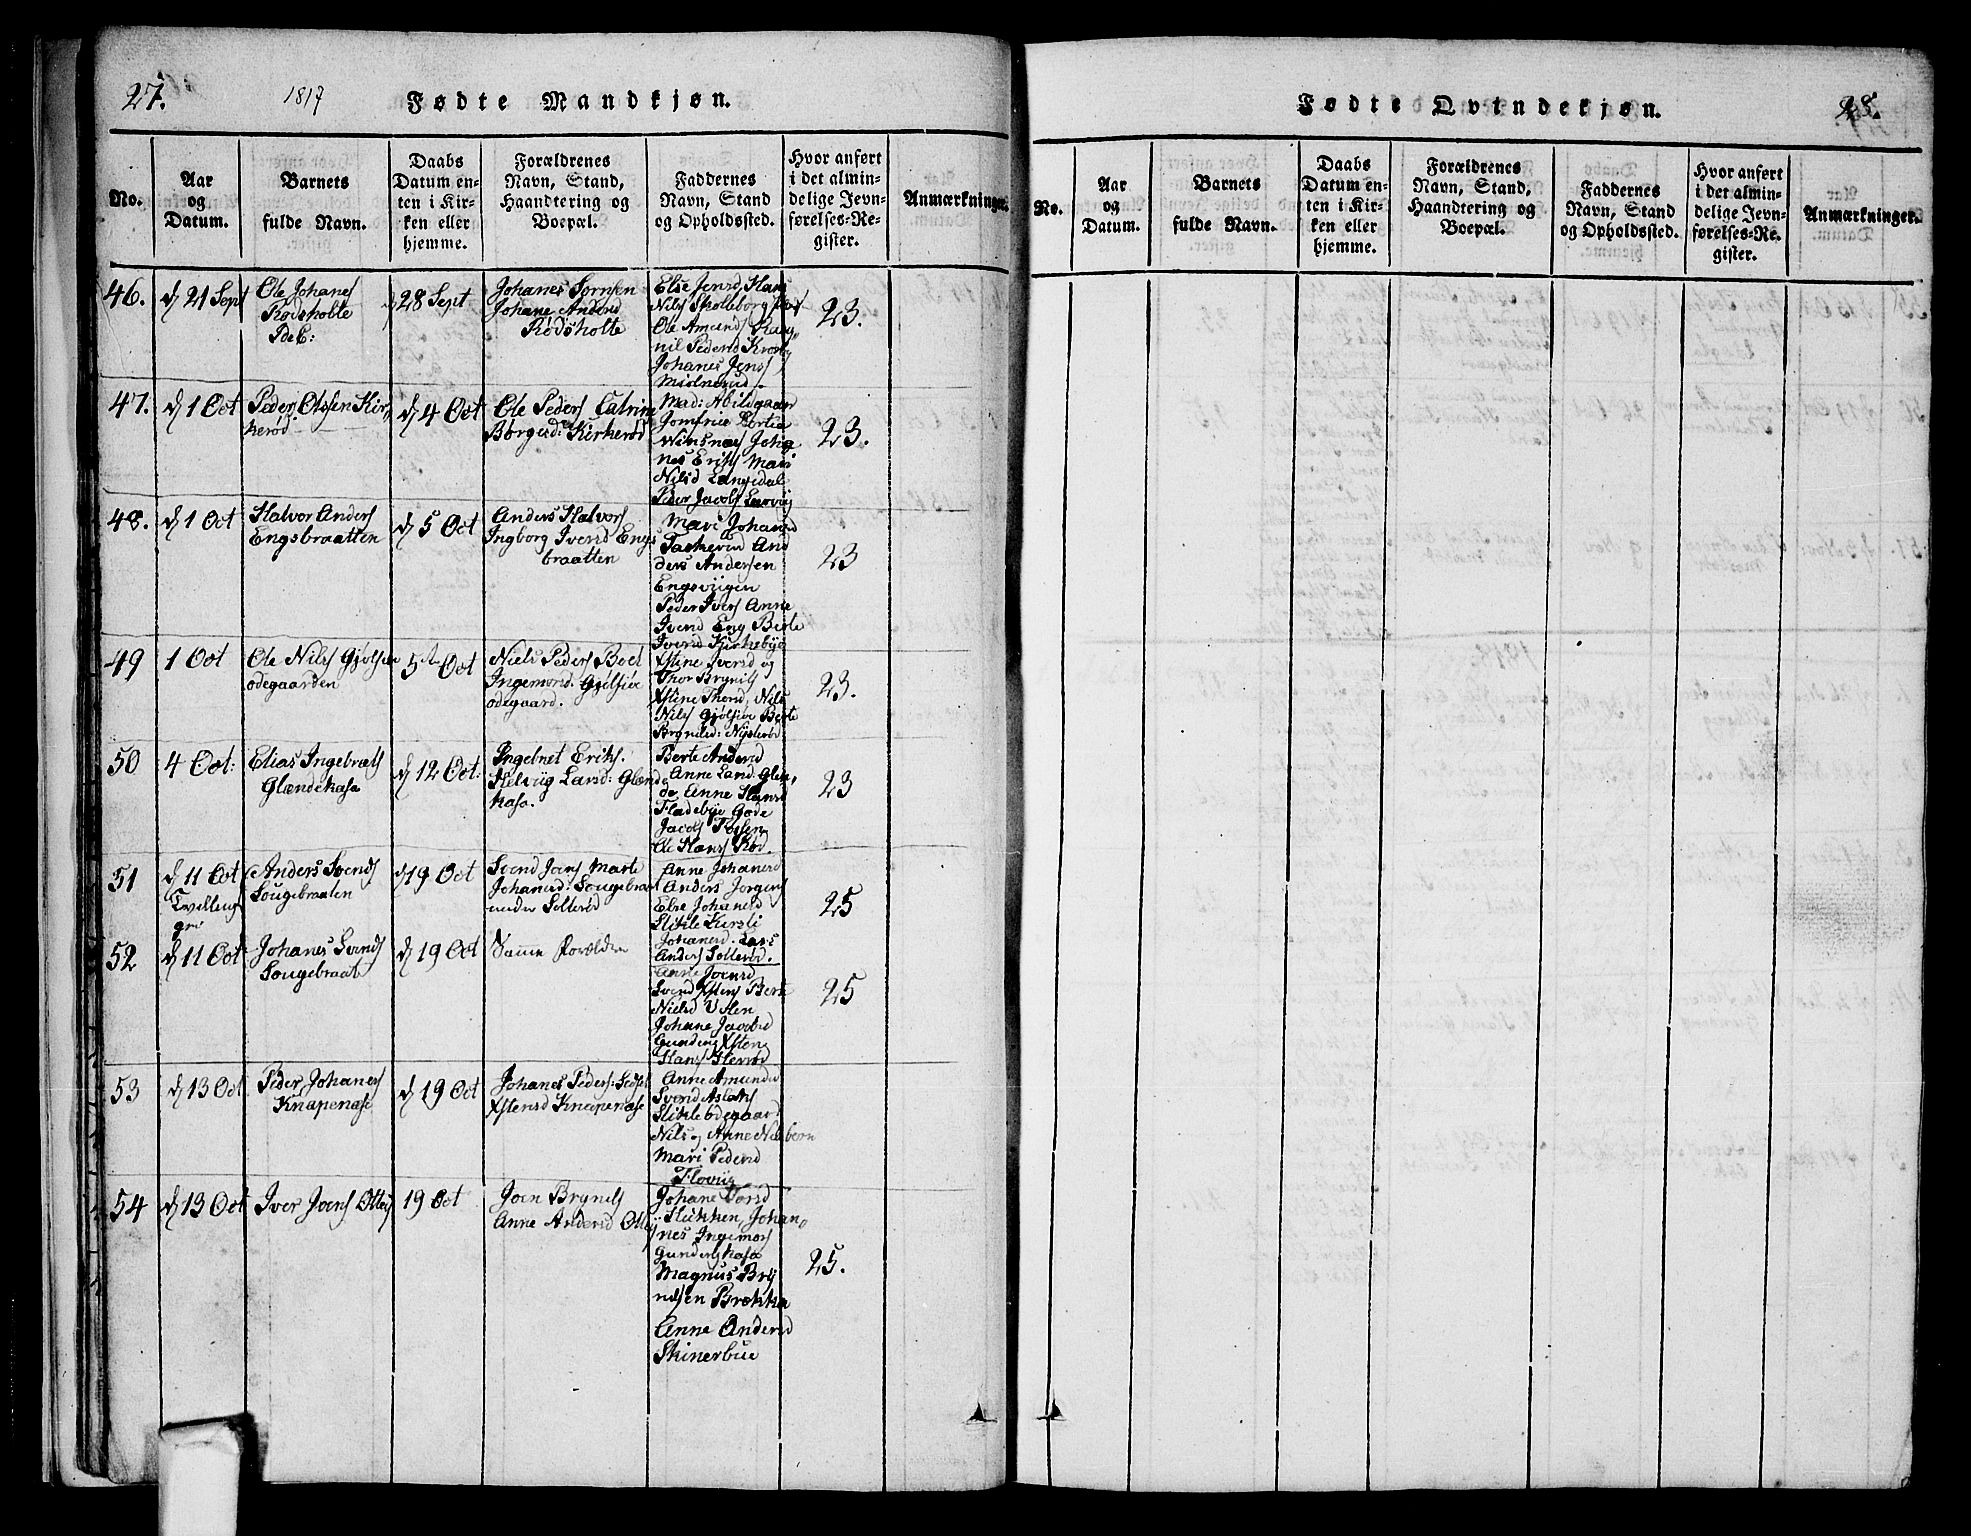 27.
1817
Fødte Mandkjøn.
No.
Aar
og
Datum.
Barnets
fulde Navn.
Daabs
Datum en-
ten i Kir-
ken eller
hjemme.
Forældrenes
Navn, Stand,
Haandtering og
Boepæl.
Faddernes
Navn, Stand
og Opholdssted.
Hvor anført
i det almin-
delige Jevn-
førelses-Re-
gister.
Anmærkninger.
46.
21 Sept
Ole Johanes
Rødsholte
28 Sept
Johanes Sørnsen
Johane Andersd
Rødsholte
Else Jensd, Hans
Nils Skolleborg
Ole Amunds
nil Pedersd
Johanes Jens
23.
47.
1 Oct
Peder Olssen Kir
kerød
4 Oct
Ole Peders Catrine
Børgesd: Kirkerød
Mad: Abildgaar
Jomfrue
Joha
nes Eriks Mari
Nilsd Langedal
Peder Jacobs
23.
48.
1 Oct
Halvor Anders
Engsbraatten
5 Oct
Anders Halvors
Ingborg Iversd Engs
braatten
Mari Johansd
And
ders Andersen
Engsviigen
Peder Ivers Anne
Iversd Eng Berte
Iversd Kirkebye
23
49
1 Oct
Ole Nils Gjølsiøe
ødegaarden
5 Oct
Niels Peders Boel
Ingemorsd. Gjølsiøe
ødegaard.
Xstine Iversd og
Thor Brynils
Xstine Thorsd, Nils
Nils Gjølsiøe Berte
Brynilsd:
23.
50
4 Oct:
Elias Ingebrets
Glændekasa
12 Oct:
Ingebret Eriks.
Helviig Larsd: Glænde
kasa.
Berte Andersd
Anne Larsd: Glen
de, Anne Hansd
Fladebye
Jacob
Ole Hans Rød.
23
51
11 Oct
Tvilling
Anders Svends
Sougebraaten
19 Oct
Svend Joens Marte
Johanesd: Sougebraat
under Solterød
Anne Johanesd
Anders Jørgens
Else Johanesd
Slitele Kersti
Johanesd. Lars
Anders Solterød.
25
52
11 Oct
Johanes Svends
Sougebraat
19 Oct
Samme Forældre
Anne Joensd
Svend Xstens Berte
Nielsd
Johane Jacobsd
Xsten
Hans
25
53
13 Oct
Peder Johanes
Knapenase
19 Oct
Johanes Peders: Sedsel
Xstensd Knapenase
Anne Amunds
Svend Aslaks
Slitelødegaard
Nils og Anne
Mari Pedersd
54
13 Oct
Iver Joens Ottey
19 Oct
Joen Brynils
Anne Andersd Ottey
Johane Torsd
Slukken, Johan
nes Ingemors
Gunderskasa
Magnus Bry
nilsen Brekka
Anne Andersd
Skinerbue
25.
Fødte Qvindekjøn.
28.
No.
Aar
og
Datum.
Barnets
fulde Navn.
Daabs
Datum en-
ten i Kir-
ken eller
hjemme.
Forældrenes
Navn, Stand,
Haandtering og
Boepæl.
Faddernes
Navn, Stand
og Opholdssted.
Hvor anført
i det almin-
delige Jevn-
førelses-Re-
gister.
Anmærkninger.